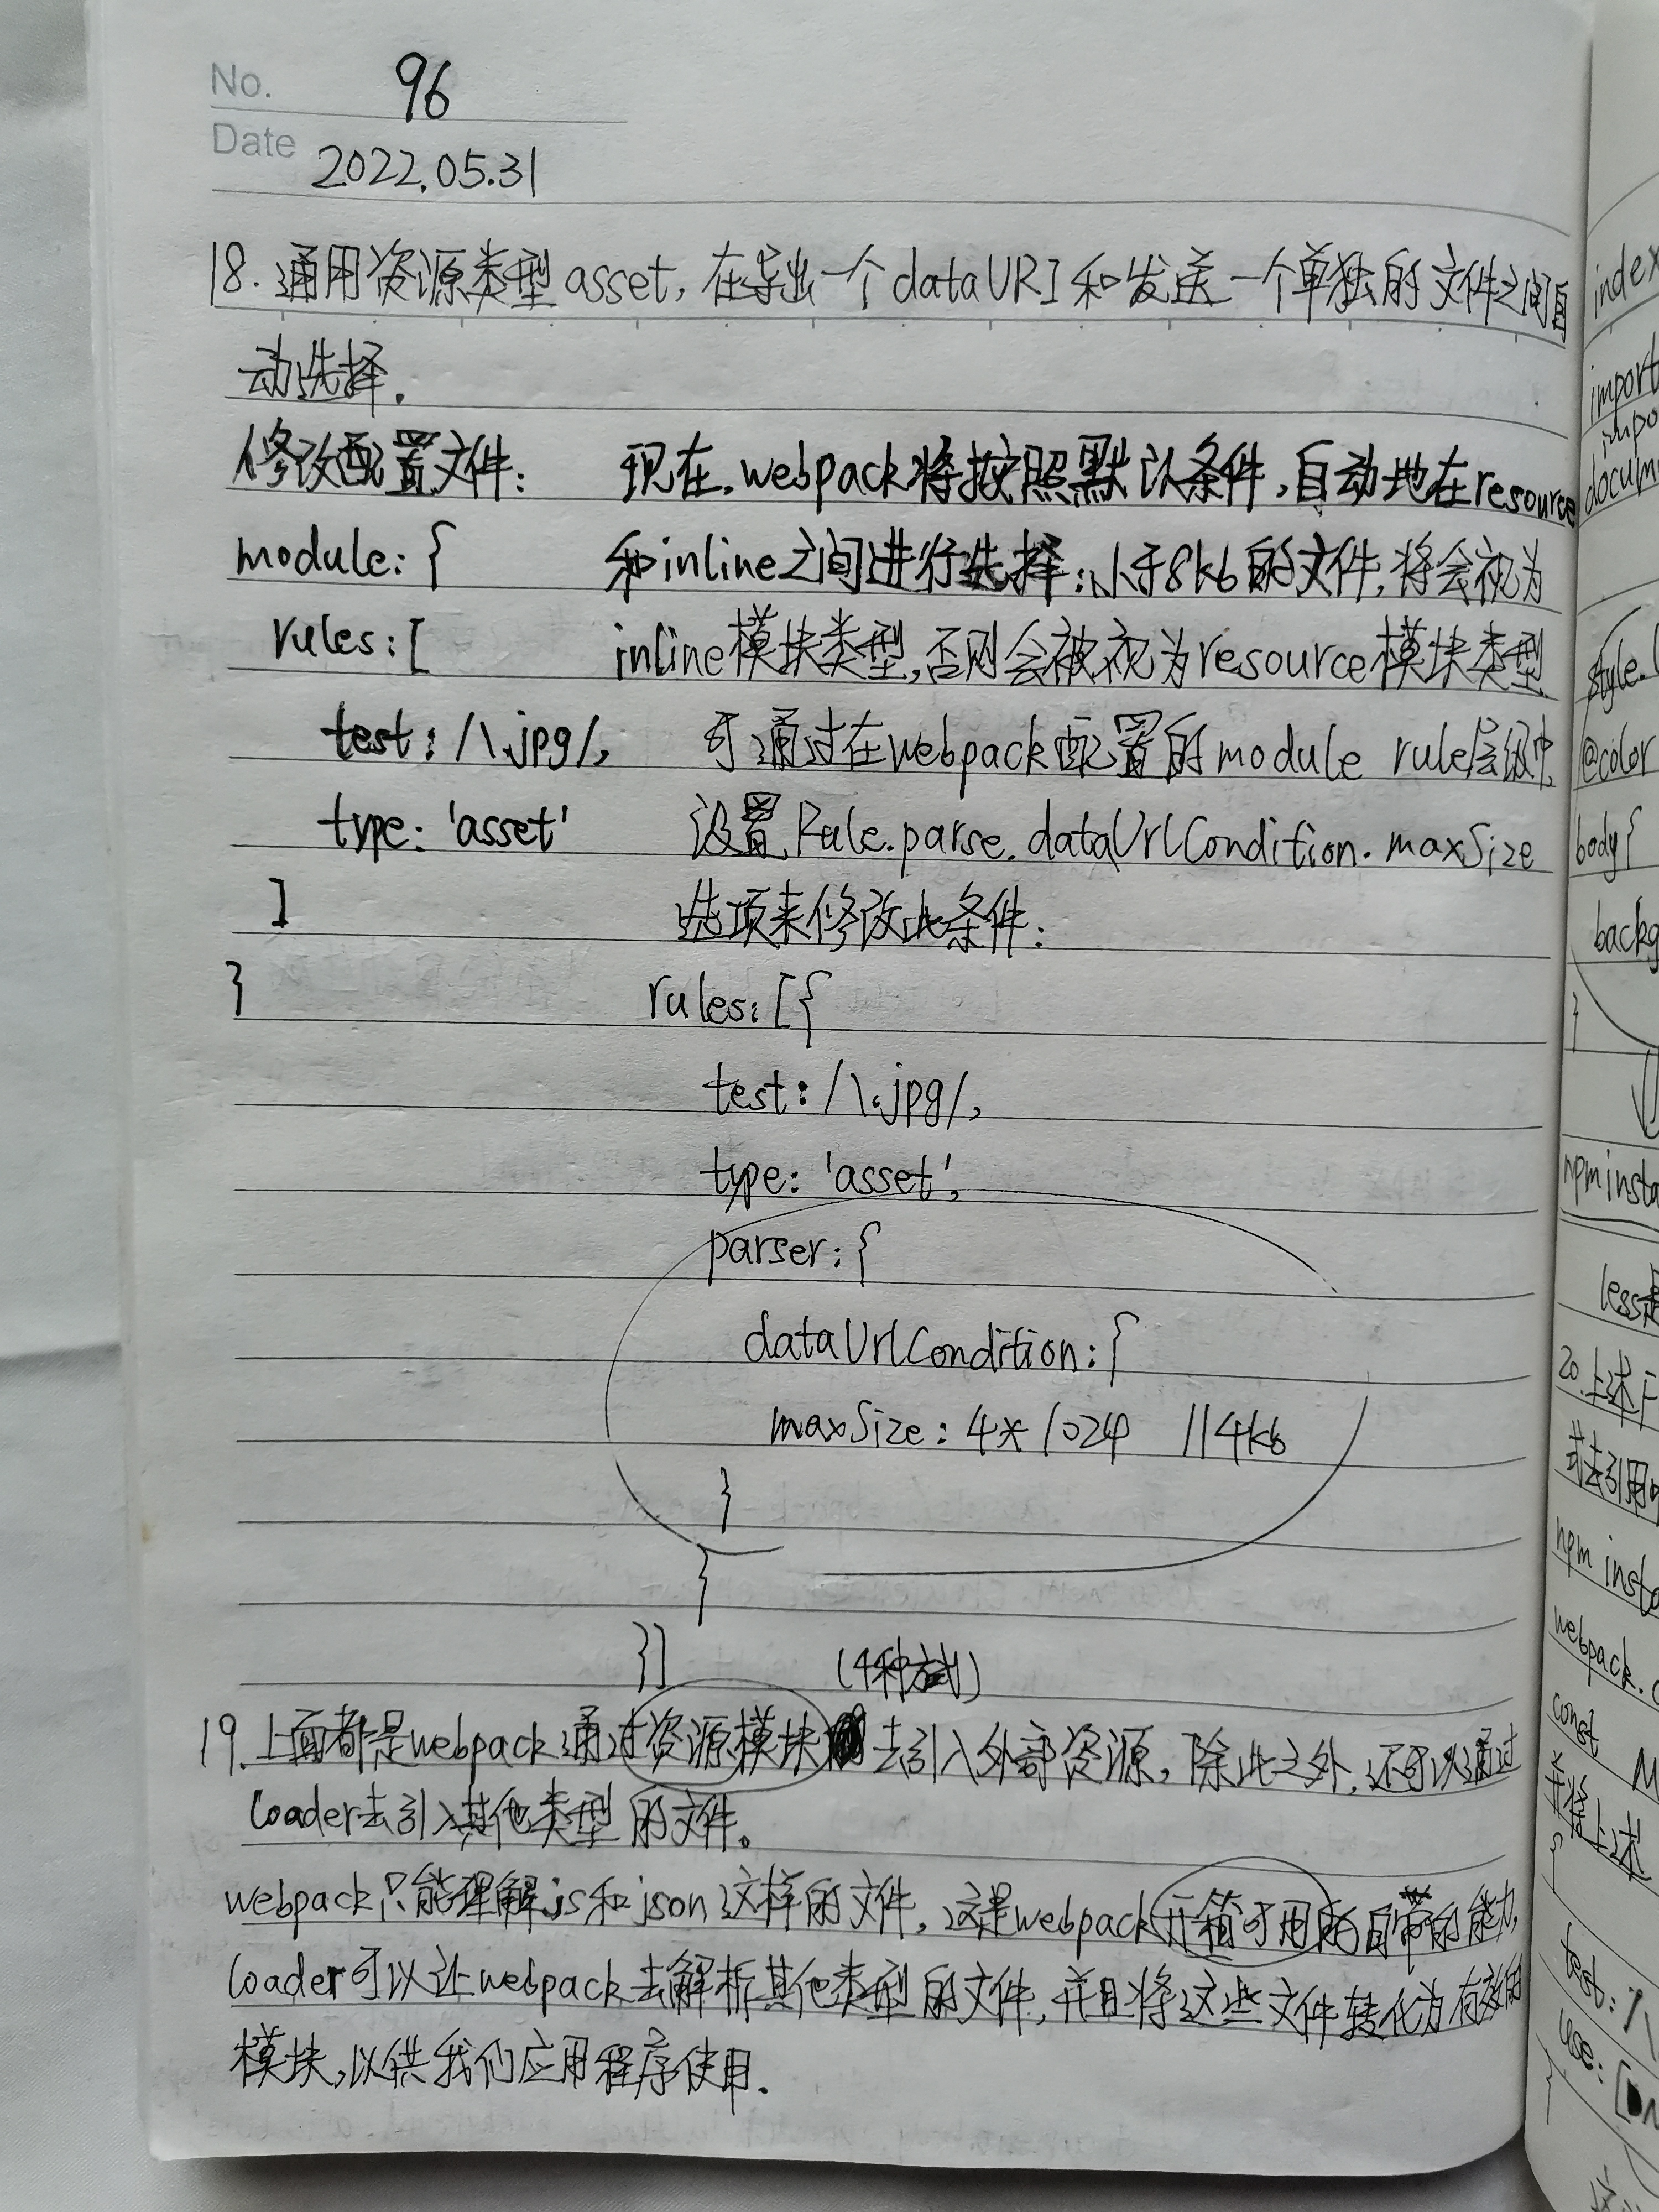 No. 96
Date 2022.05.31
18. 通用资源类型asset, 在导出一个dataURI和发送一个单独的文件之间自
动选择.
修改配置文件:
module: {
rules: [
test: /\.jpg/,
type: 'asset'
]
}
现在.webpack将按照默认条件,自动地在resource
和inline之间进行选择:小于8kb的文件,将会视为
inline模块类型,否则会被视为resource模块类型.
可通过在webpack配置的module rule层级中,
设置Rule.parse.dataUrlCondition.maxSize
选项来修改此条件:
rules: [{
test: /\.jpg/,
type: 'asset',
parser: {
dataUrlCondition: {
maxSize: 4*1024 //4kb
}
}
}]
(4种方式)
19.上面都是webpack通过资源模块去引入外部资源,除此之外,还可以通过
loader去引入其他类型的文件。
webpack只能理解js和json这样的文件,这是webpack开箱可用的自带的能力,
loader可以让webpack去解析其他类型的文件,并且将这些文件转化为有效的
模块,以供我们应用程序使用.
index
import
impo
docum
style.
@color
body {
backg
}
npm insta
less是
20.上述
式去引用
npm insta
webpack.c
const M
并将上述
test: /\
use: [